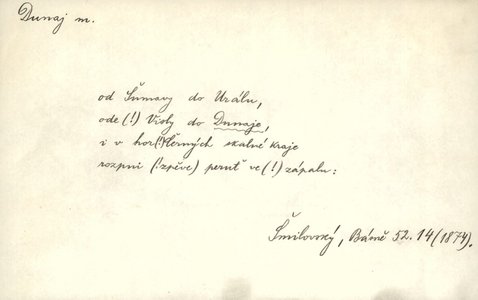 Dunaj m.
od Šumavy do Urálu,
ode (!) Visly do Dunaje,
i v hor (!) Černých skalné kraje
rozpni (!zpěve) peruť ve (!) zápalu:
Šmilovský, Básně 52.14 (1874).